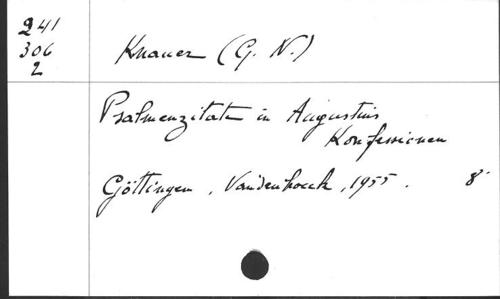 241
306
2
Knauer (G. N.)
Psalmenzitate in Augustins
Konfessionen
Göttingen, Vandenhoeck, 1955. 8°